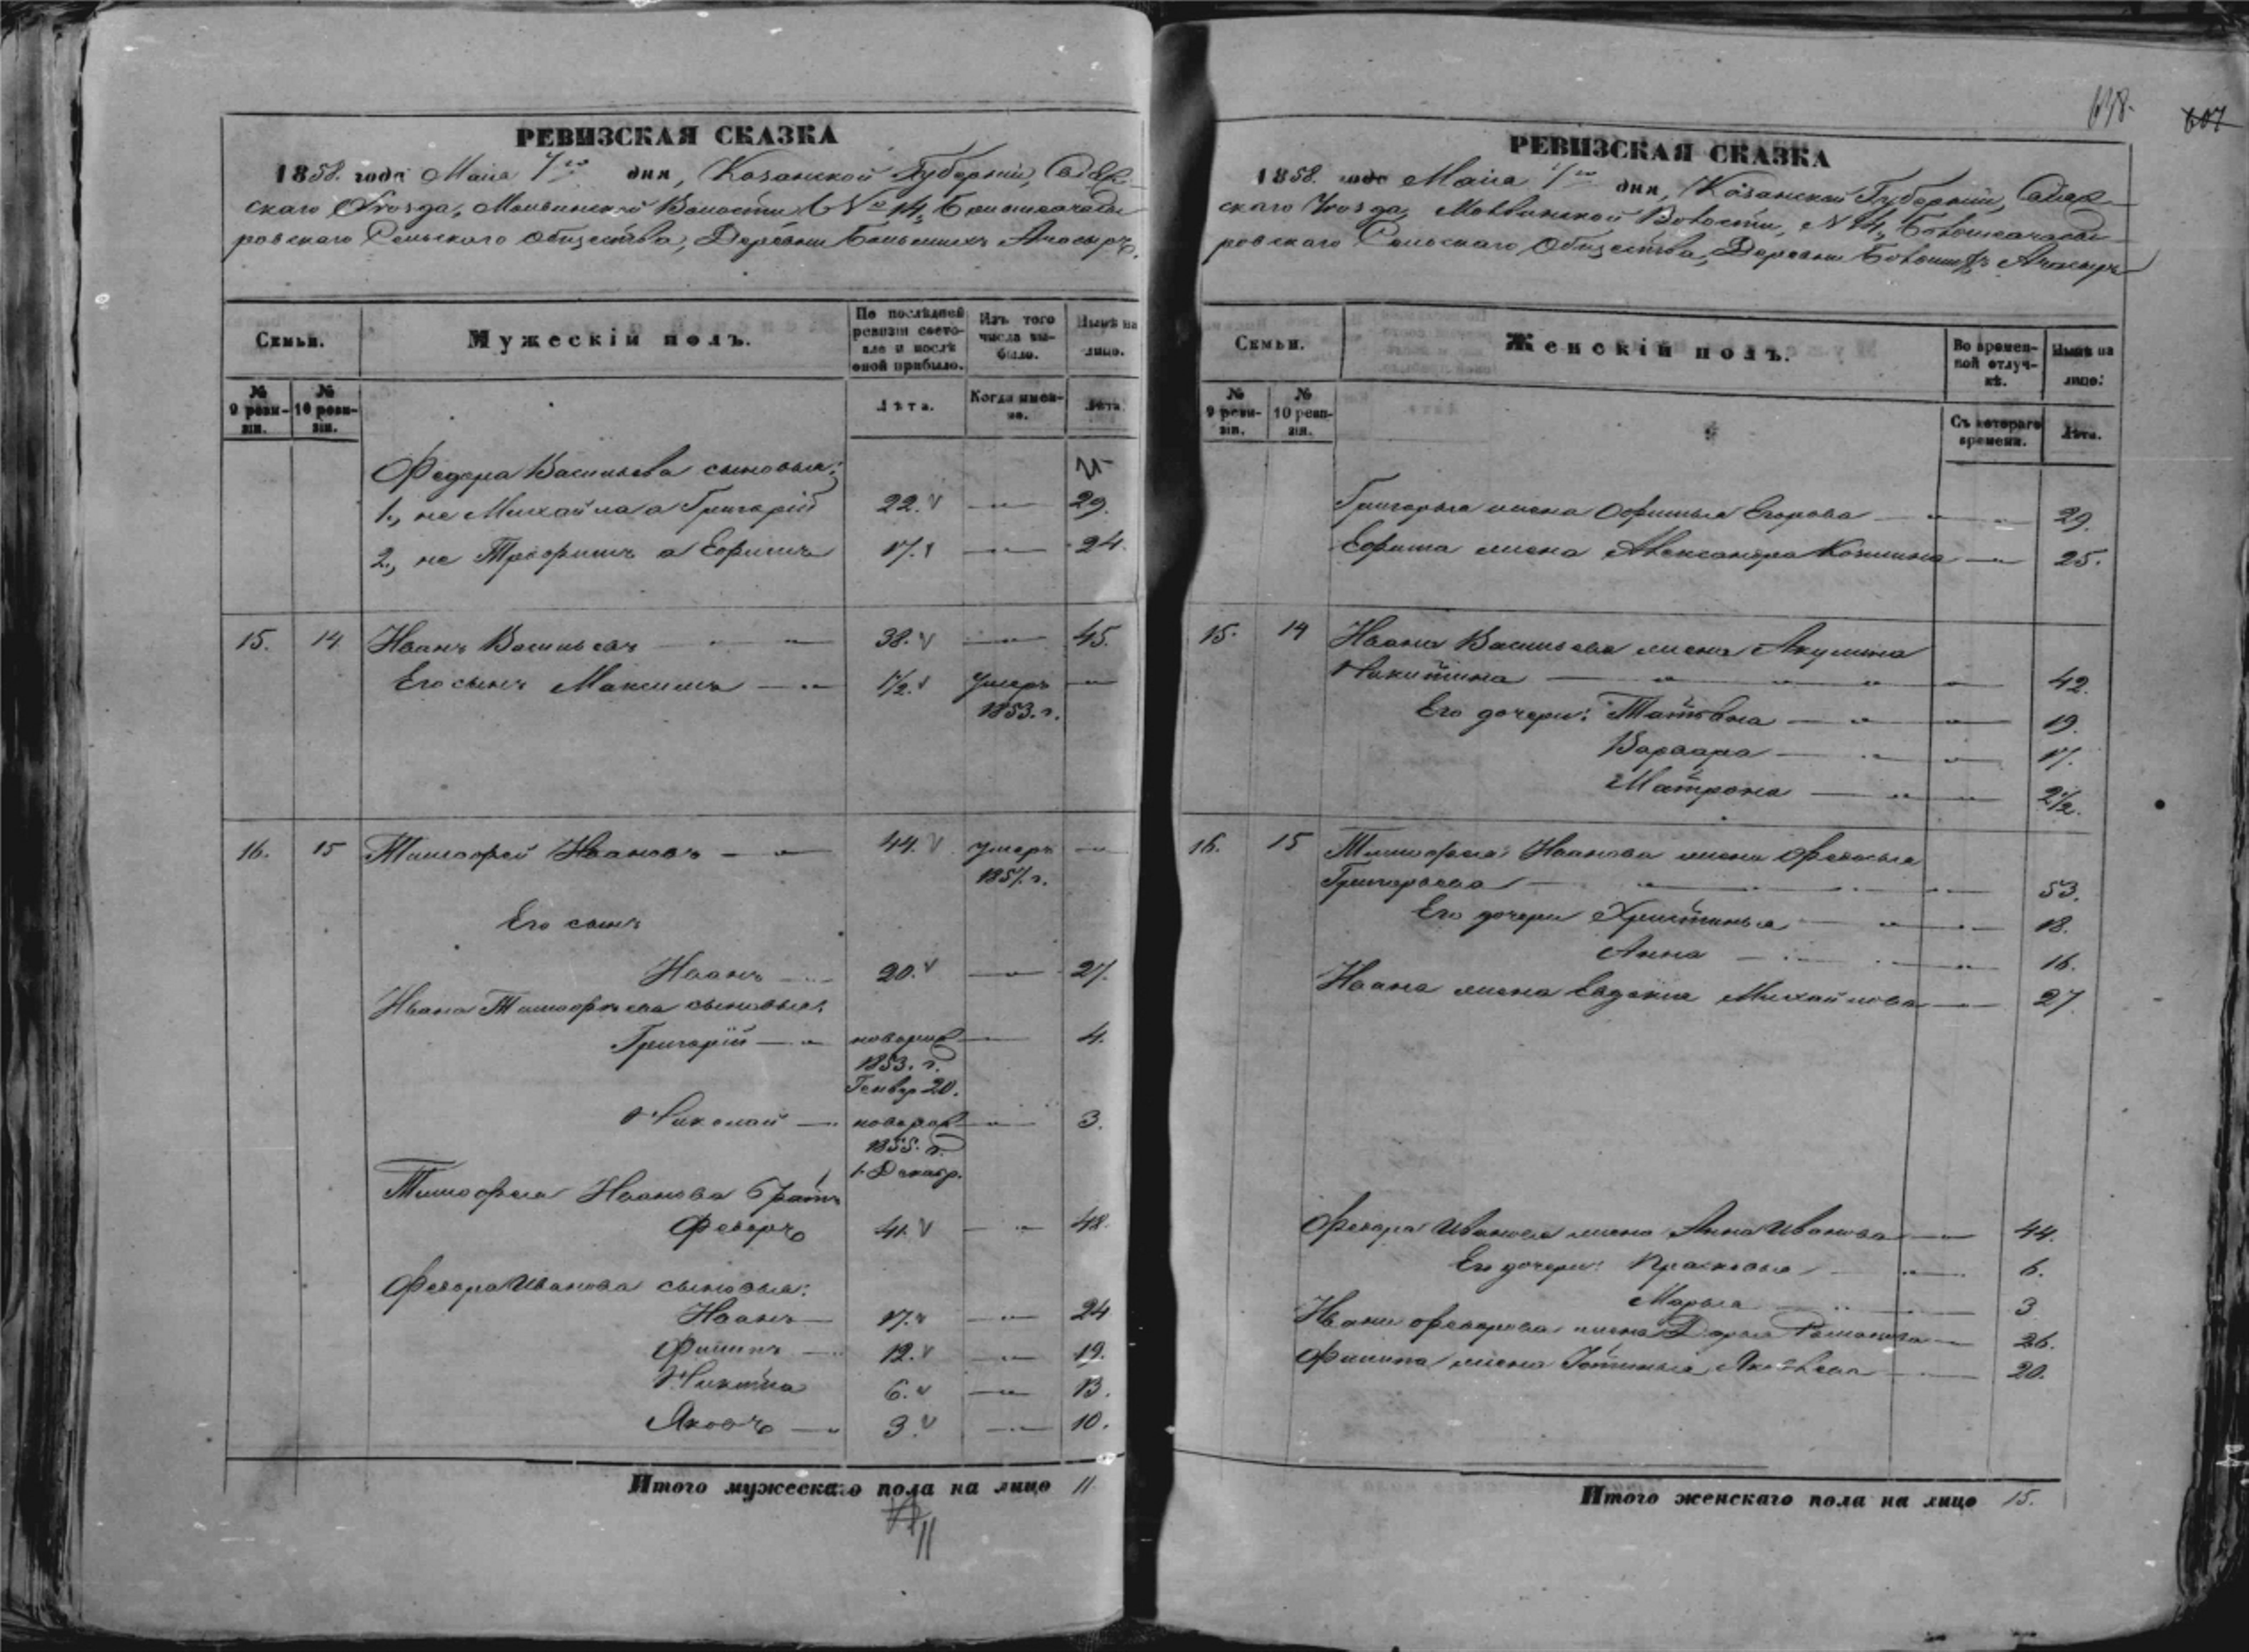 РЕВИЗСКАЯ СКАЗКА
1858. года Маія 7го дня, Казанской Губерніи,
скаго Уѣзда, Волости № 14,
ровскаго Сельскаго Общества, Деревни Большихъ Ачасыръ.
Семьи.
Мужескій полъ.
По послѣдней ревизіи состояло и послѣ оной прибыло.
Изъ того числа выбыло.
Нынѣ на лицо.
№ 9 ревизіи.
№ 10 ревизіи.
Лѣта.
Когда именно.
Лѣта.
Федора Васильева сыновья:
1., не Михайла а Григорій 22. — 29.
2., не Трофимъ а Ефимъ 17. — 24.
15. 14 Иванъ Васильевъ — 38. — 45.
Его сынъ Максимъ — 1/2. Умеръ —
1853. г.
16. 15 Тимофей Ивановъ — 44. Умеръ —
1857. г.
Его сынъ
Иванъ — 20. — 27.
Ивана Тимофѣева сыновья:
Григорій — новорож — 4.
1853. г.
Генвар 20.
Николай — новорож — 3.
1855. г.
1. Декабр.
Тимофея Иванова братъ
Федоръ 41. — 48.
Федора Иванова сыновья:
Иванъ — 17. — 24
Филипъ — 12. — 19.
Никита 6. — 13.
Яковъ — 3. — 10.
Итого мужескаго пола на лицо 11
11
648.
607
РЕВИЗСКАЯ СКАЗКА
1858. года Маія 7го дня, Казанской Губерніи,
скаго Уѣзда, Волости, № 14,
ровскаго Сельскаго Общества, Деревни Большихъ Ачасыръ
Семьи.
Женскій полъ.
Во временной отлучкѣ.
Нынѣ на лицо.
№ 9 ревизіи.
№ 10 ревизіи.
Съ котораго времени.
Лѣта.
Григорья жена Офимья Егорова — 29.
Ефима жена Александра Козмина — 25.
15. 14 Ивана Васильева жена Акулина
Никитина — 42.
Его дочери: Татьяна — 19.
Варвара — 17.
Матрона — 2 1/2.
16. 15 Тимофея Иванова жена Федосья
Григорьева — 53.
Его дочери Христинья — 18.
Анна — 16.
Ивана жена Евдокия Михайлова — 27
Федора Иванова жена Анна Иванова — 44.
Его дочери: Прасковья — 6.
Марья — 3
Ивана Федорова жена Дарья Романова — 26.
Филипа жена Устинья Яковлева — 20.
Итого женскаго пола на лицо 15.